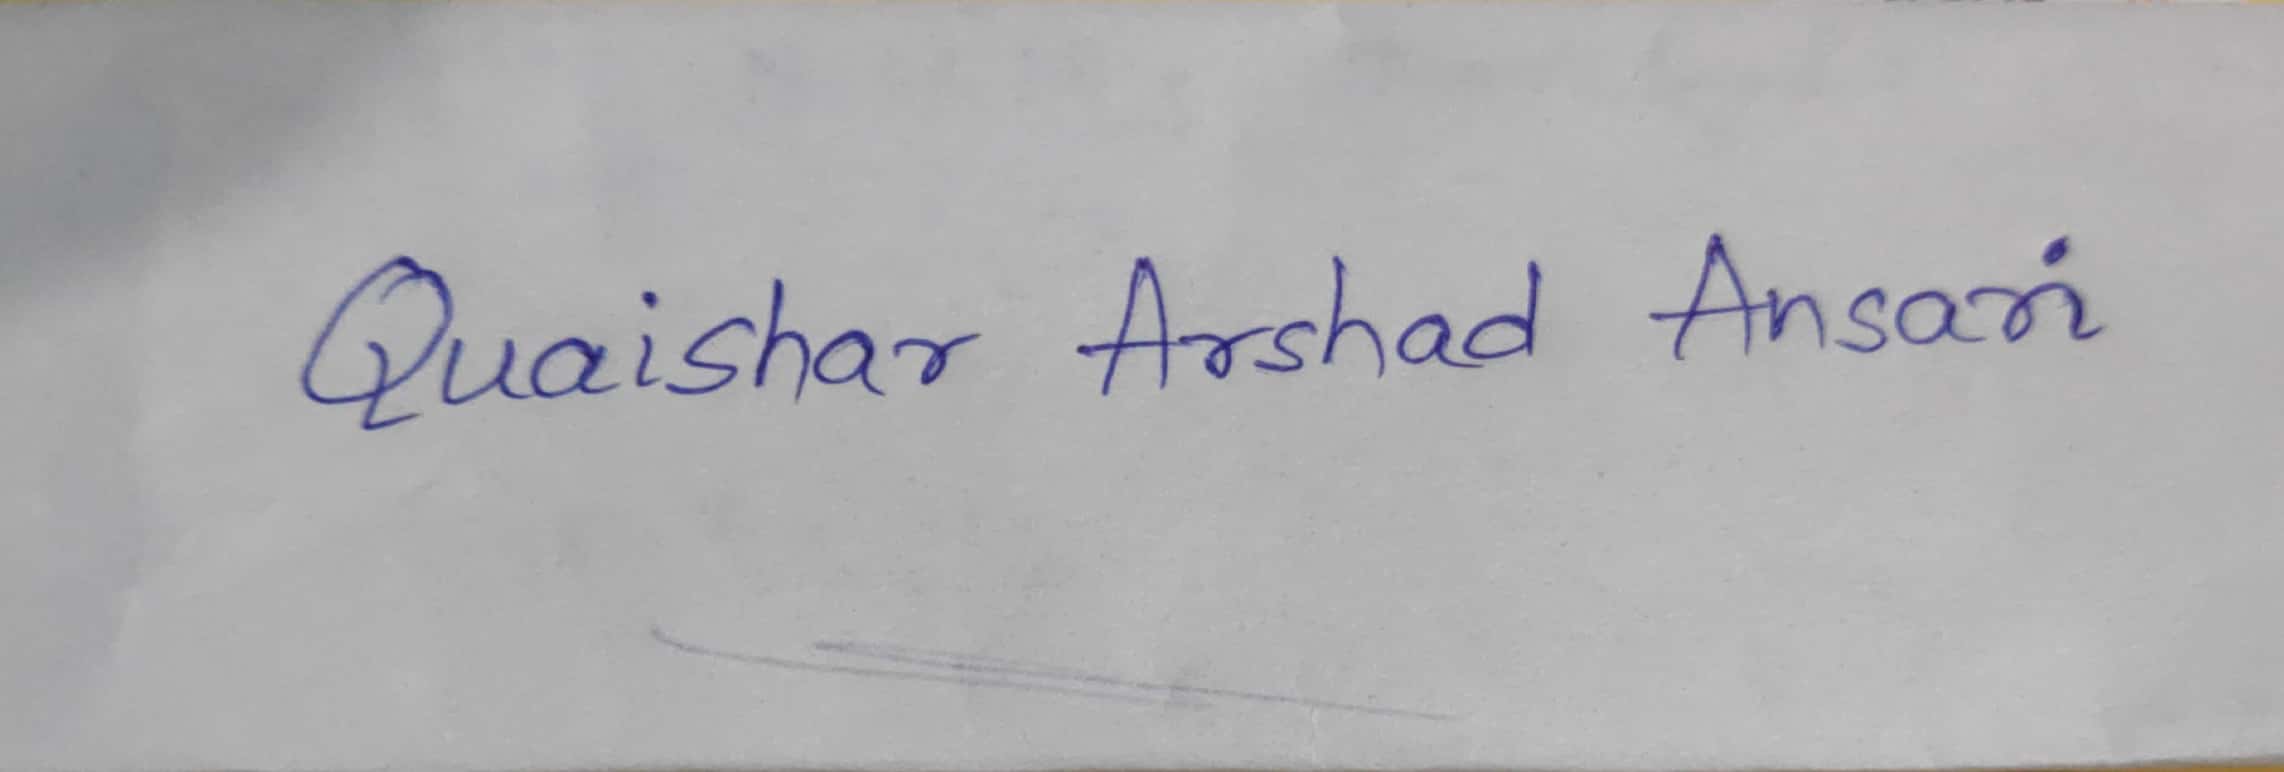 Quaishar Arshad Ansari